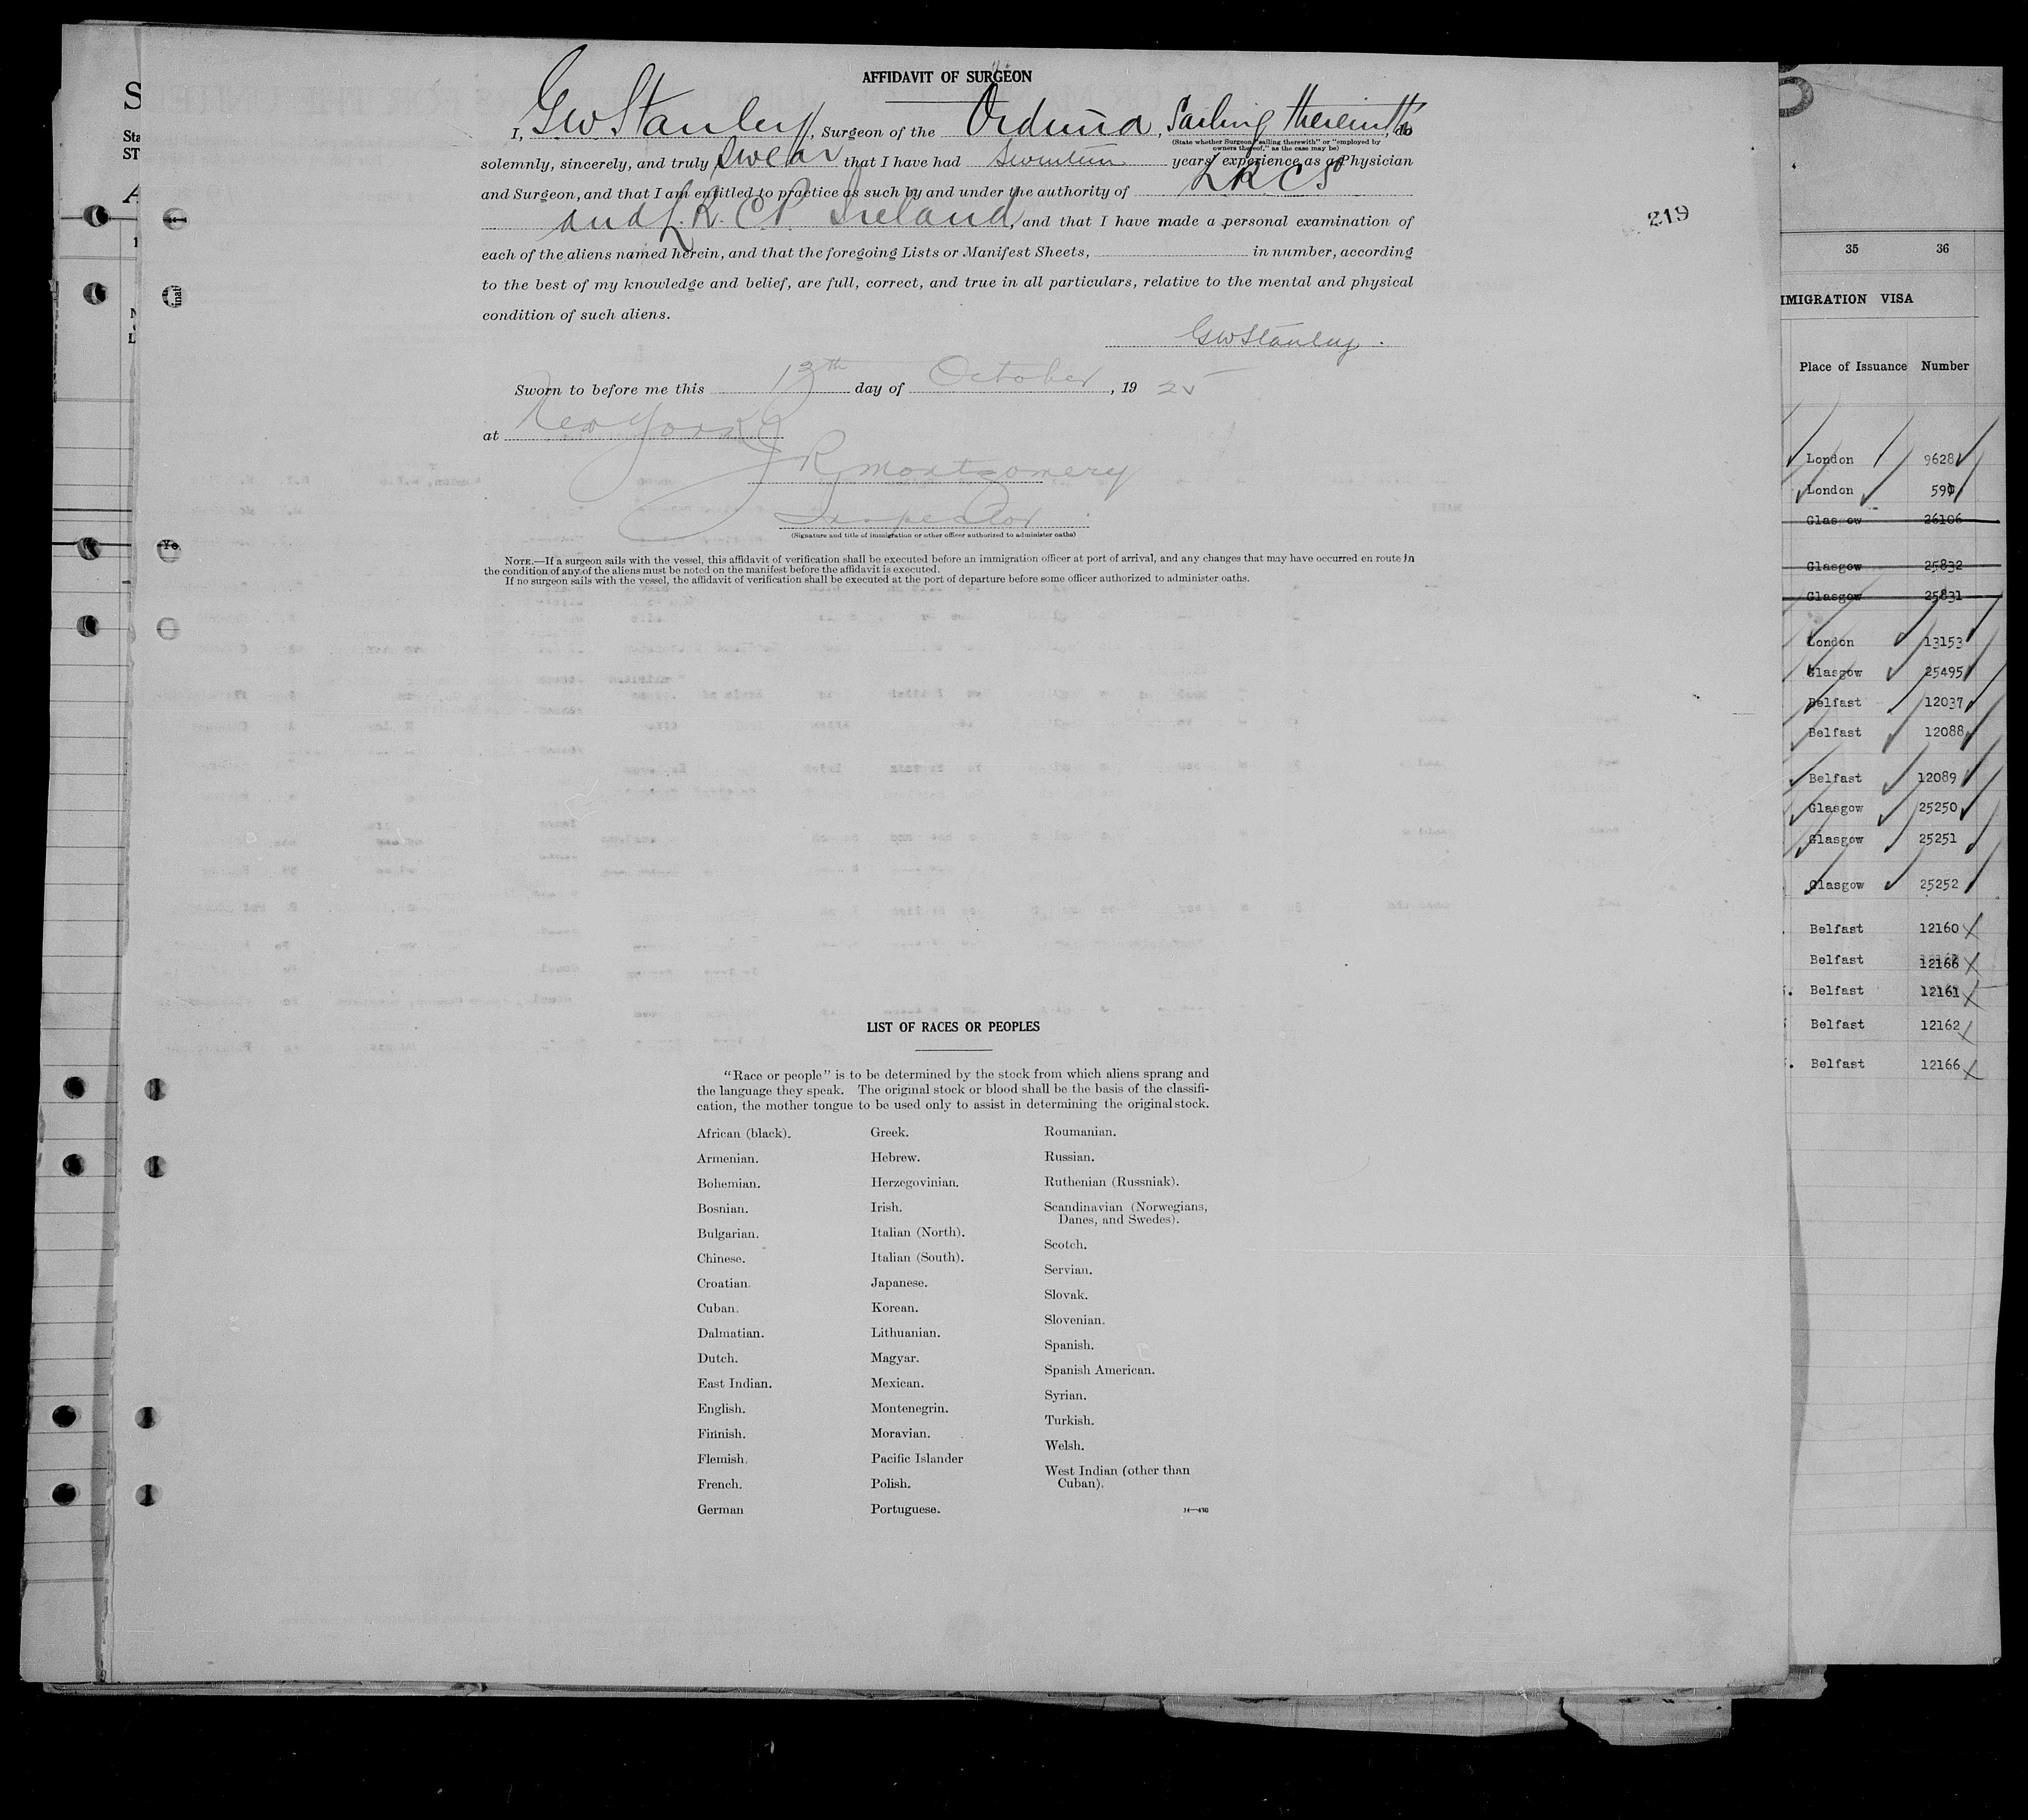 AFFIDAVIT OF SURGEON
I, GW Stanley, Surgeon of the Orduña, Sailing therewith, do
(State whether Surgeon "sailing therewith" or "employed by
owners thereof," as the case may be)
solemnly, sincerely, and truly swear that I have had years' experience as a Physician
and Surgeon, and that I am entitled to practice as such by and under the authority of LRCS
and L.R.C.P. Ireland, and that I have made a personal examination of
each of the aliens named herein, and that the foregoing Lists or Manifest Sheets, in number, according
to the best of my knowledge and belief, are full, correct, and true in all particulars, relative to the mental and physical
condition of such aliens.
GW Stanley.
Sworn to before me this 13th day of October, 19 25
at New York
JR Montgomery
Inspector
(Signature and title of immigration or other officer authorized to administer oaths)
NOTE.—If a surgeon sails with the vessel, this affidavit of verification shall be executed before an immigration officer at port of arrival, and any changes that may have occurred en route in
the condition of any of the aliens must be noted on the manifest before the affidavit is executed.
If no surgeon sails with the vessel, the affidavit of verification shall be executed at the port of departure before some officer authorized to administer oaths.
219
LIST OF RACES OR PEOPLES
"Race or people" is to be determined by the stock from which aliens sprang and
the language they speak. The original stock or blood shall be the basis of the classifi-
cation, the mother tongue to be used only to assist in determining the original stock.
African (black).
Armenian.
Bohemian.
Bosnian.
Bulgarian.
Chinese.
Croatian.
Cuban.
Dalmatian.
Dutch.
East Indian.
English.
Finnish.
Flemish.
French.
German
Greek.
Hebrew.
Herzegovinian.
Irish.
Italian (North).
Italian (South).
Japanese.
Korean.
Lithuanian.
Magyar.
Mexican.
Montenegrin.
Moravian.
Pacific Islander
Polish.
Portuguese.
Roumanian.
Russian.
Ruthenian (Russniak).
Scandinavian (Norwegians,
Danes, and Swedes).
Scotch.
Servian.
Slovak.
Slovenian.
Spanish.
Spanish American.
Syrian.
Turkish.
Welsh.
West Indian (other than
Cuban).
35 36
IMIGRATION VISA
Place of Issuance Number
London 9628
London
Glas ow 26106
Glasgow 25832
Glasgow 25831
London 13153
Glasgow 25495
Belfast 12037
Belfast 12088
Belfast 12089
Glasgow 25250
Glasgow 25251
Glasgow 25252
Belfast 12160
Belfast 12166
Belfast 12161
Belfast 12162
Belfast 12166